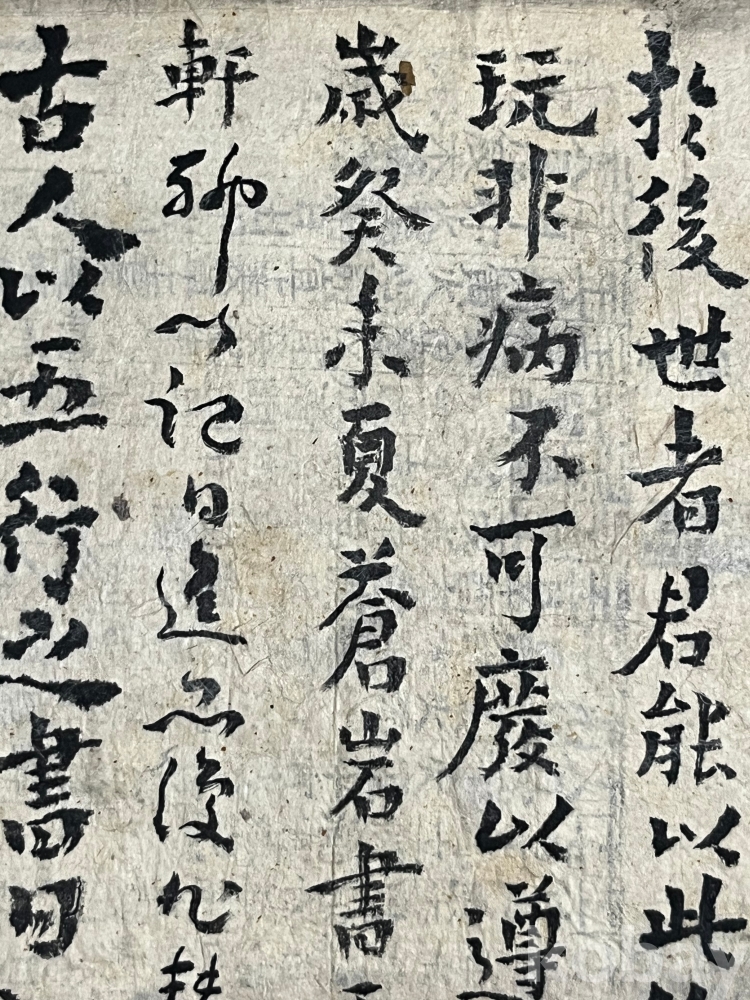 於後世者君能以此
玩非病不可廢以遵
歲癸未夏蒼岩書
軒聊以記日進
後
古人以五行之書曰